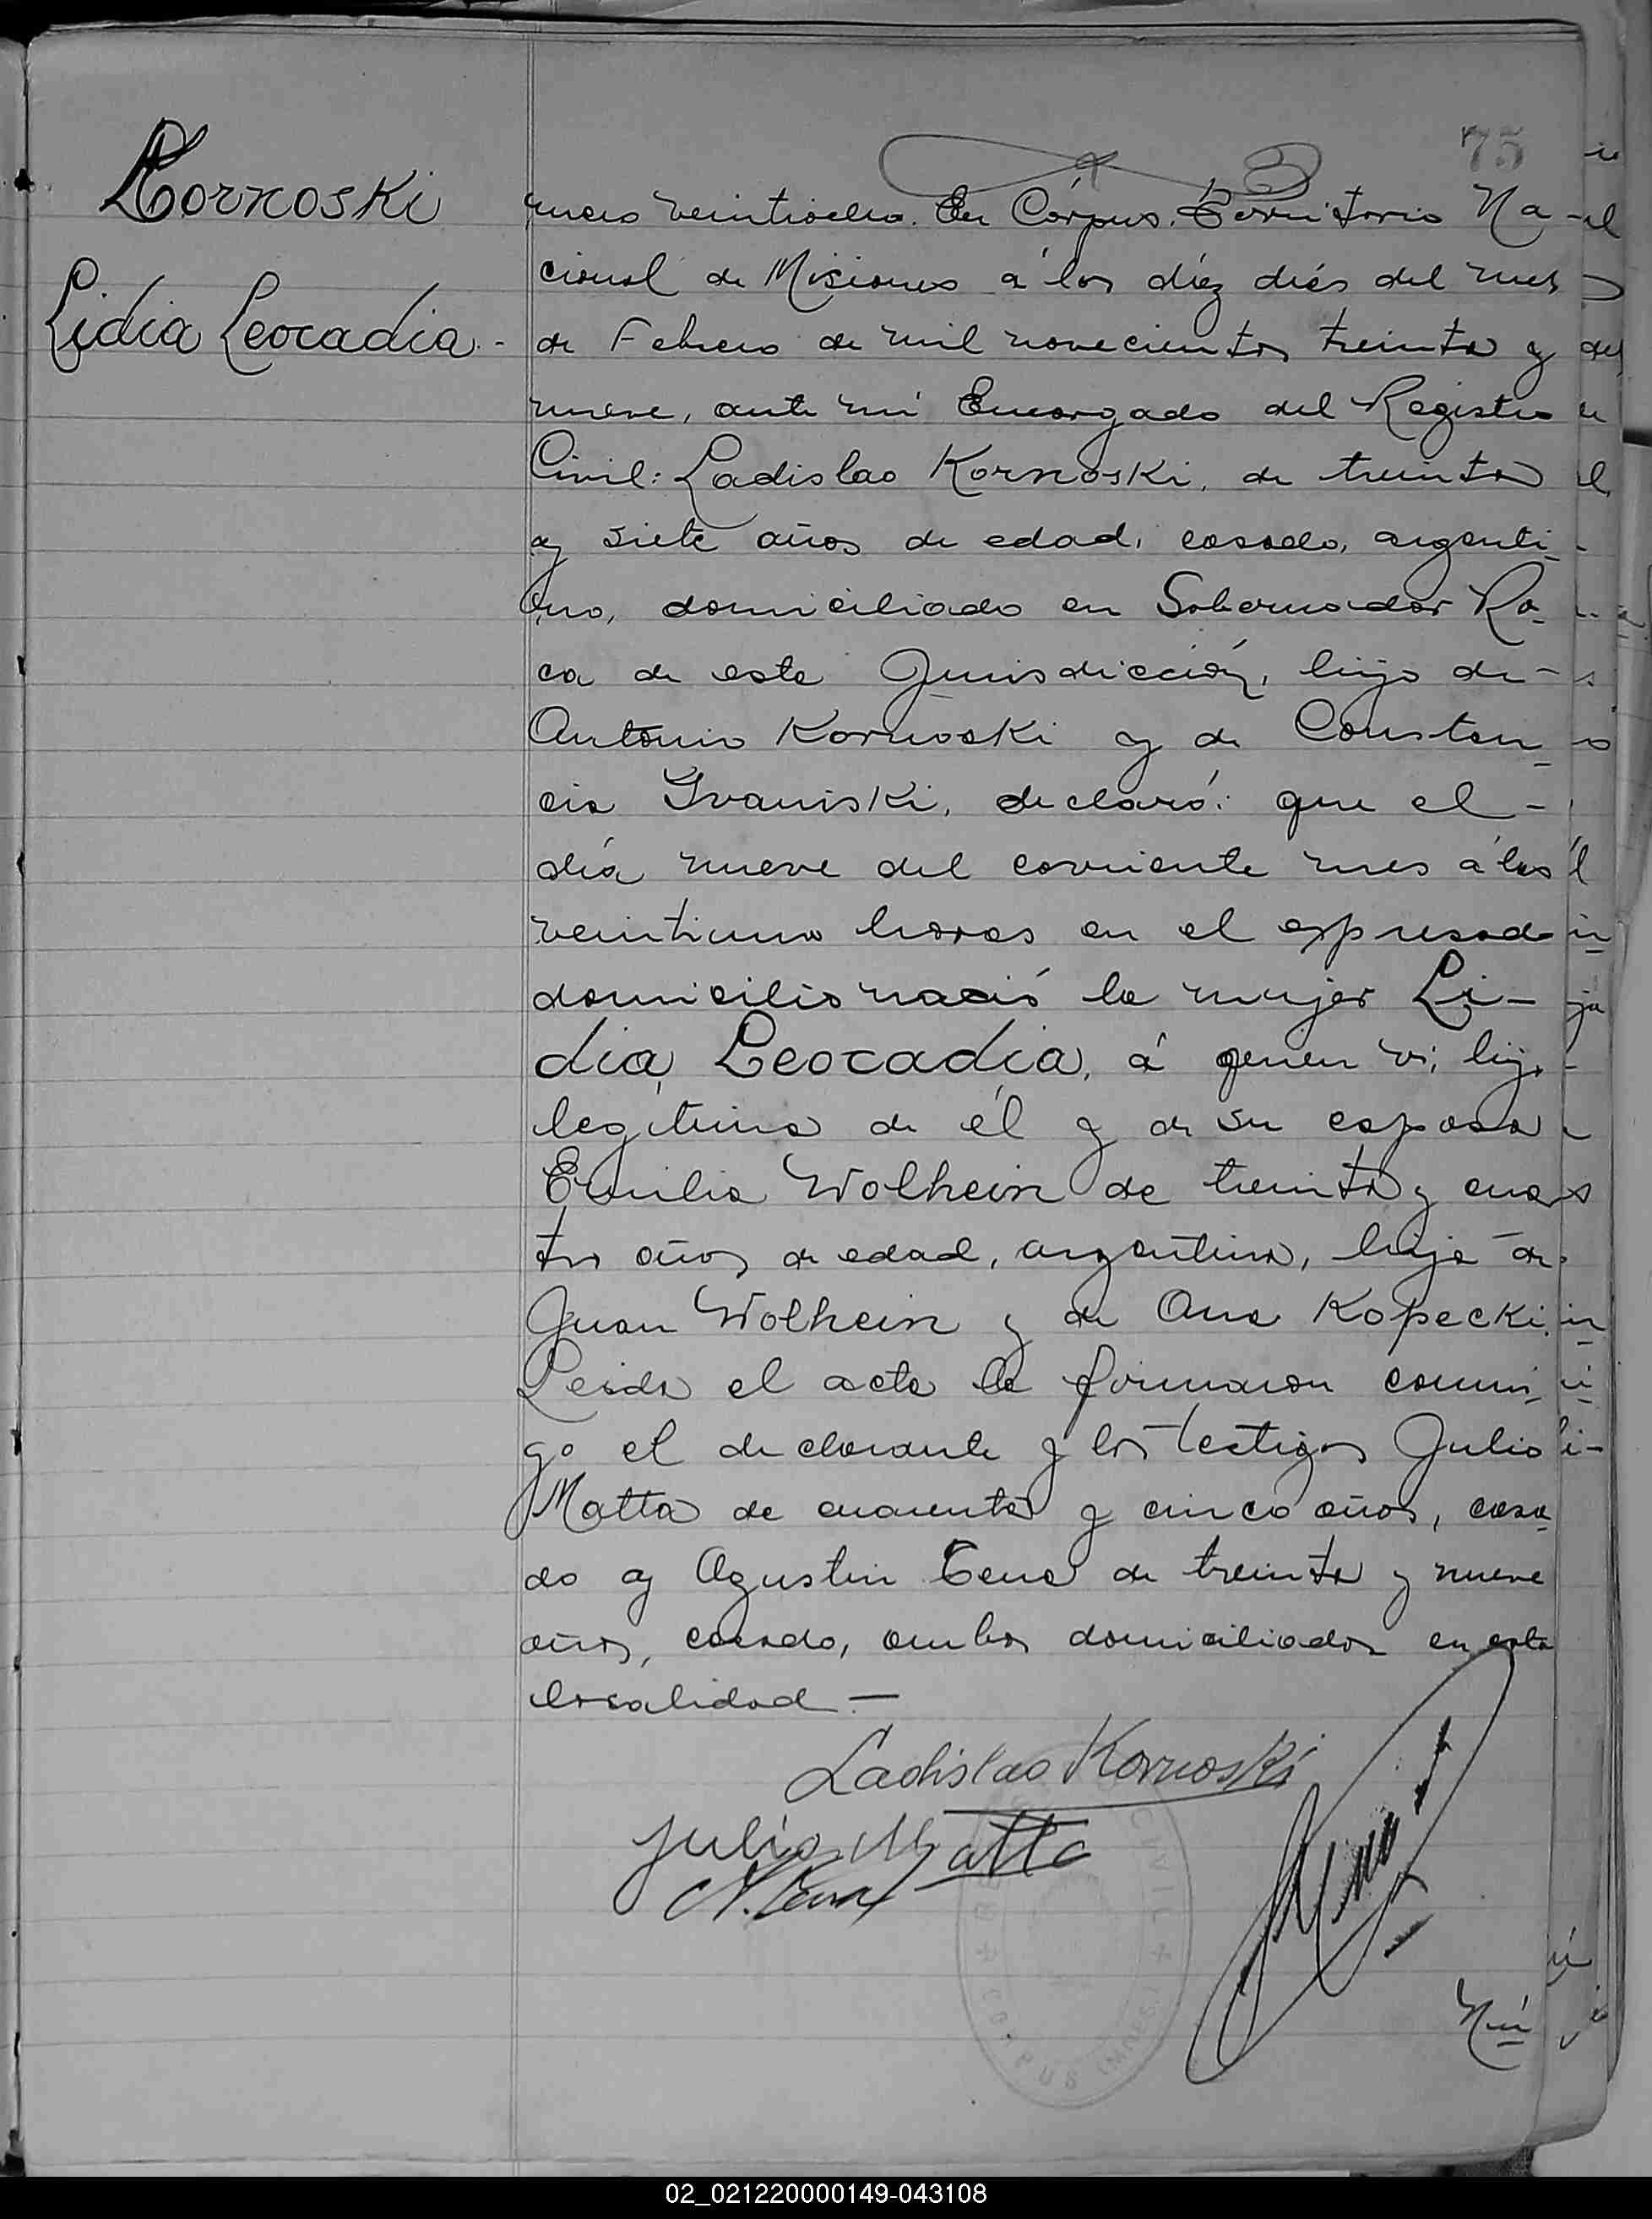 75
Kornoski
Lidia Leocadia.-
mero veintiocho. En Córpus, Territorio Na
cional de Misiones á los diéz diás del mes
de Febrero de mil novecientos treinta y
nueve, ante mi Encargado del Registro
Civil: Ladislao Kornoski, de treinta
y siete años de edad, casado, argenti-
no, domiciliado en Gobernador Ro-
ca de esta Jurisdicción, hijo de-
Antonio Kornoski y de Constan-
cia Ivaniski, declaró: que el-
día nueve del corriente mes á las
veintiuna horas en el expresado
domicilio nació la mujer Li-
dia Leocadia, á quien vi, hija
legitima de él y de su esposa
Emilia Wolhein de treinta y cua
tro años de edad, argentina, hija de
Juan Wolhein y de Ana Kopecki.
Leida el acta la firmaron conmi-
go el declarante y los testigos Julio
Matta de cuarenta y cinco años, casa-
do y Agustin Cena de treinta y nueve
años, casado, ambos domiciliados en esta
localidad.-
Ladislao Kornoski
Julio Matta
CIVIL
CORPUS (MNES.)
Nú-
02_021220000149-043108